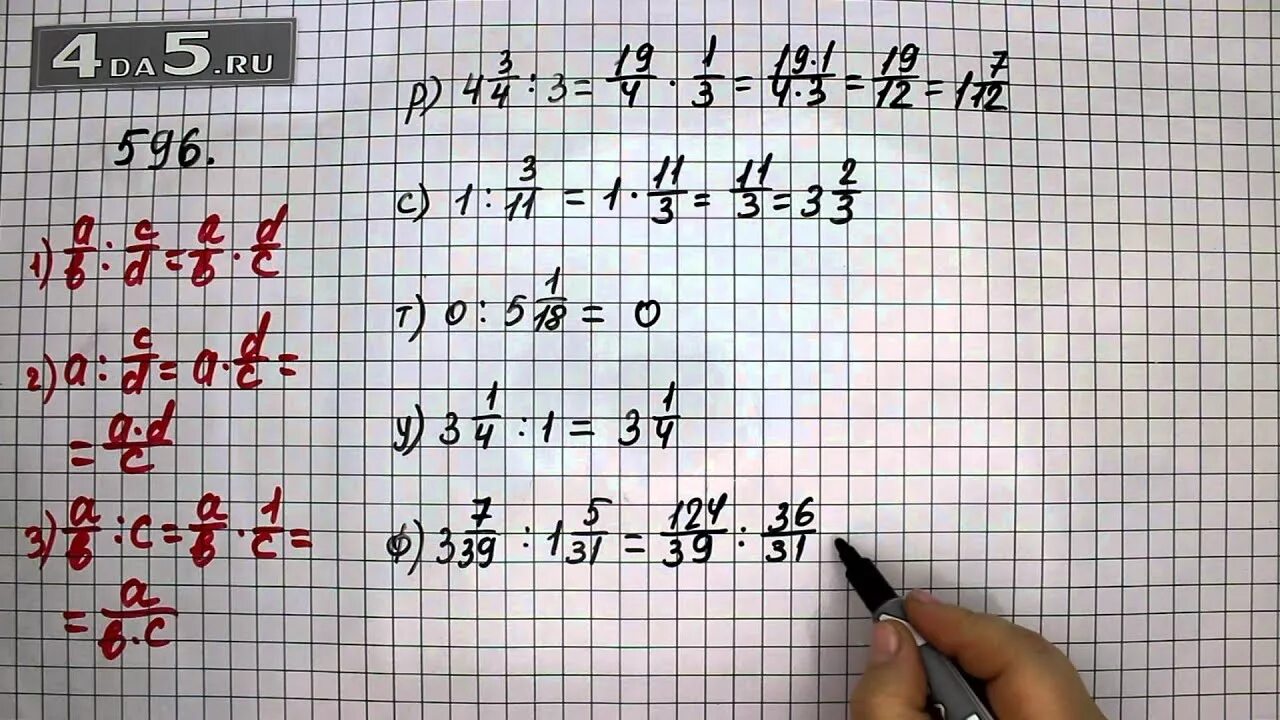 4DA5.RU
596.
1) a/в : c/d = a/в · d/c
2) a : c/d = a · d/c =
= a·d/c
3) a/в : c = a/в · 1/c =
= a/в·c
р) 4 3/4 : 3 = 19/4 · 1/3 = 19·1/4·3 = 19/12 = 1 7/12
с) 1 : 3/11 = 1 · 11/3 = 11/3 = 3 2/3
т) 0 : 5 1/18 = 0
у) 3 1/4 : 1 = 3 1/4
ф) 3 7/39 : 1 5/31 = 124/39 : 36/31